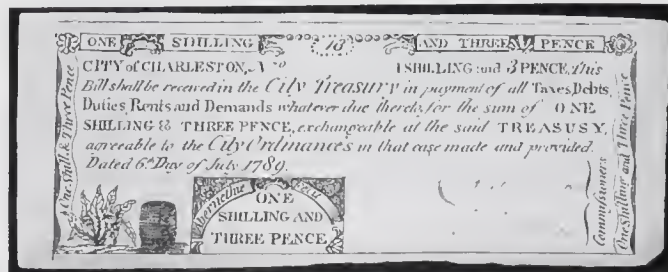 ONE SHILLING AND THREE PENCE
CITY of CHARLESTON, No 1 SHILLING and 3 PENCE. This
Bill shall be received in the City Treasury in payment of all Taxes, Debts,
Duties, Rents and Demands whatever due thereto, for the sum of ONE
SHILLING & THREE PENCE, exchangeable at the said TREASUSY,
agreeable to the City Ordinances in that case made and provided.
Dated 6th Day of July 1789.
One Shill. & Three Pence
Abernethie Fecit
ONE
SHILLING AND
THREE PENCE
Commissioners
One Shilling and Three Pence